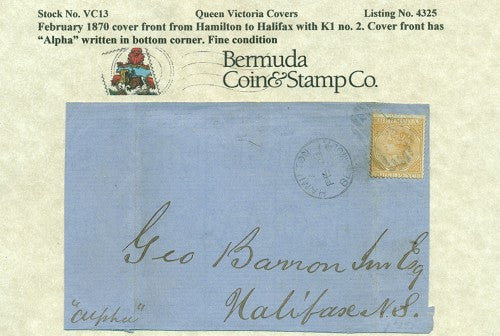 Stock No. VC13 Queen Victoria Covers Listing No. 4325
February 1870 cover front from Hamilton to Halifax with K1 no. 2. Cover front has
“Alpha” written in bottom corner. Fine condition
Bermuda
Coin&Stamp Co.
BERMUDA
HAMILTON BERMUDA
Geo Barron Jnr Esq
Halifax N.S.
"Alpha"